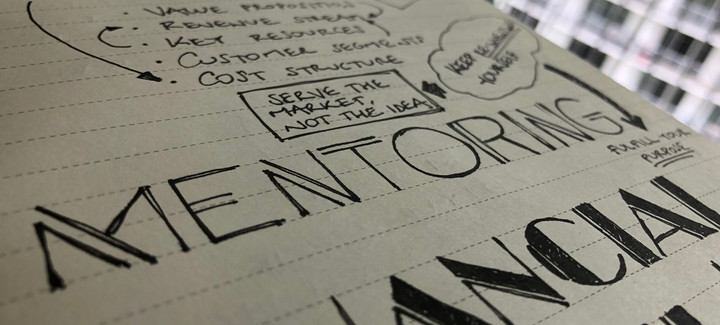 VALUE PROPOSITION
REVENUE STREAM
KEY RESOURCES
CUSTOMER SEGMENTS
COST STRUCTURE
KEEP
YOURSELF
SERVE THE
MARKET,
NOT THE IDEA
MENTORING
FULFILL YOUR
PURPOSE
ANCIAL